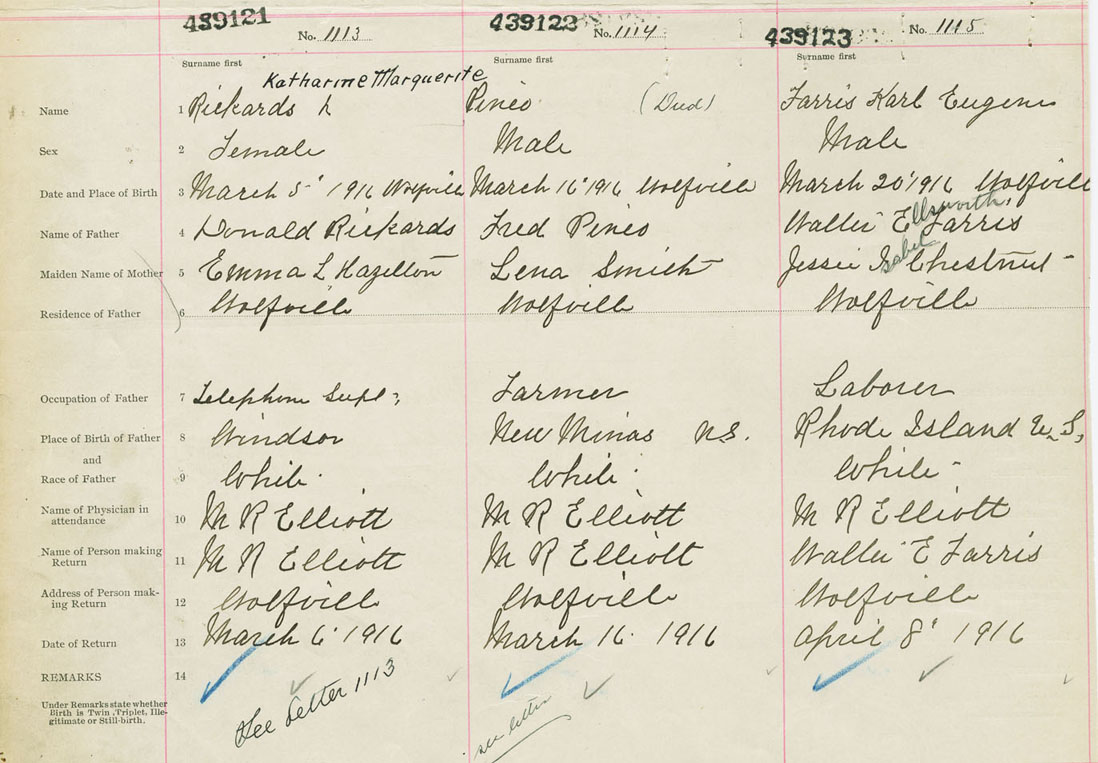 439121
No. 1113
439122
No. 1114
439123
No. 1115
Surname first
Surname first
Surname first
Katharine Marguerite
Name 1 Rickards
Pineo (Died)
Farris Karl Eugene
Sex 2 Female
Male
Male
Date and Place of Birth 3 March 5" 1916 Wolfville
March 16" 1916 Wolfville
March 20" 1916 Wolfville
Ellsworth
Name of Father 4 Donald Rickards
Fred Pineo
Walter E Farris
Isabel
Maiden Name of Mother 5 Emma L Hazelton
Lena Smith
Jessie I Chestnut
Residence of Father 6 Wolfville
Wolfville
Wolfville
Occupation of Father 7 Telephone Supt.
Farmer
Laborer
Place of Birth of Father 8 Windsor
New Minas N.S.
Rhode Island U.S.
and
Race of Father 9 White
White
White
Name of Physician in
attendance 10 M R Elliott
M R Elliott
M R Elliott
Name of Person making
Return 11 M R Elliott
M R Elliott
Walter E Farris
Address of Person mak-
ing Return 12 Wolfville
Wolfville
Wolfville
Date of Return 13 March 6. 1916
March 16. 1916
April 8" 1916
REMARKS 14
See Letter 1113
see letter
Under Remarks state whether
Birth is Twin, Triplet, Ille-
gitimate or Still-birth.